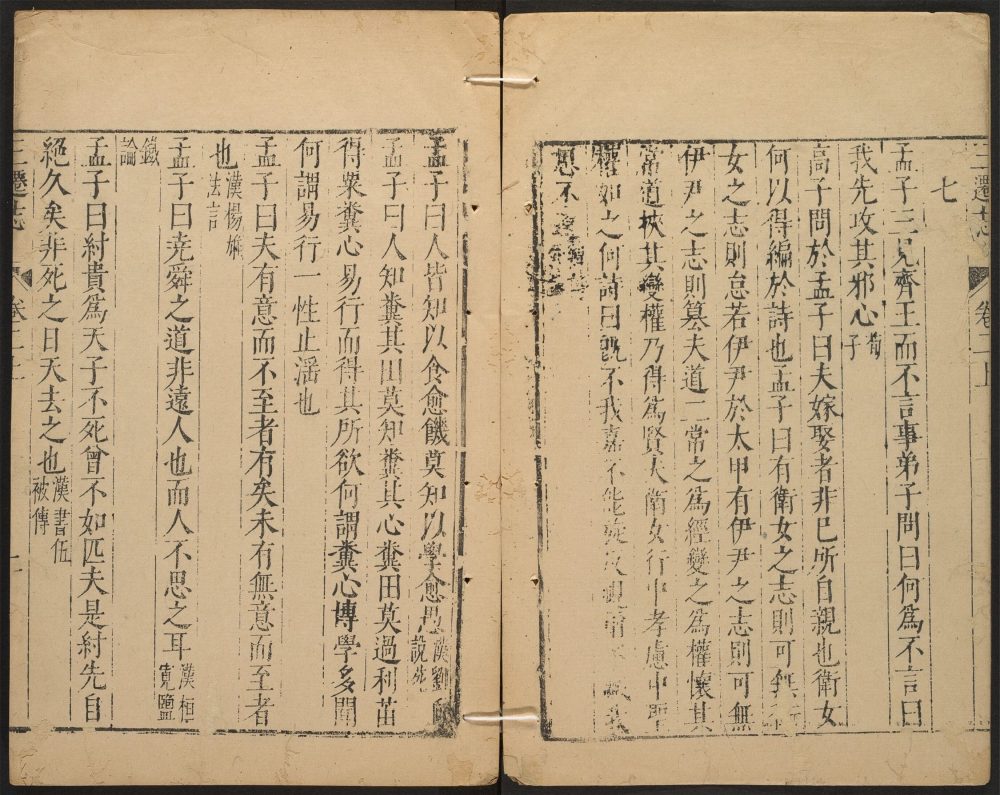 三遷志 卷二上
七
孟子三見齊王而不言事弟子問曰何爲不言曰
我先攻其邪心荀子
高子問於孟子曰夫嫁娶者非巳所自親也衛女
何以得編於詩也孟子曰有衛女之志則可無
女之志則怠若伊尹於太甲有伊尹之志則可無
伊尹之志則篡夫道二常之爲經變之爲權懷其
常道挾其變權乃得爲賢夫衛女行中孝慮中聖
權如之何詩曰旣不我嘉不能旋反
思不遠
孟子曰人皆知以食愈饑莫知以學愈愚漢劉向說苑
孟子曰人知糞其田莫知糞其心糞田莫過利苗
得粟糞心易行而得其所欲何謂糞心博學多聞
何謂易行一性止滛也
孟子曰夫有意而不至者有矣未有無意而至者
也漢楊雄法言
孟子曰堯舜之道非遠人也而人不思之耳漢桓寬鹽
鐵論
孟子曰紂貴爲天子不死曾不如匹夫是紂先自
絕久矣非死之日天去之也漢書伍被傳
三遷志 卷二上